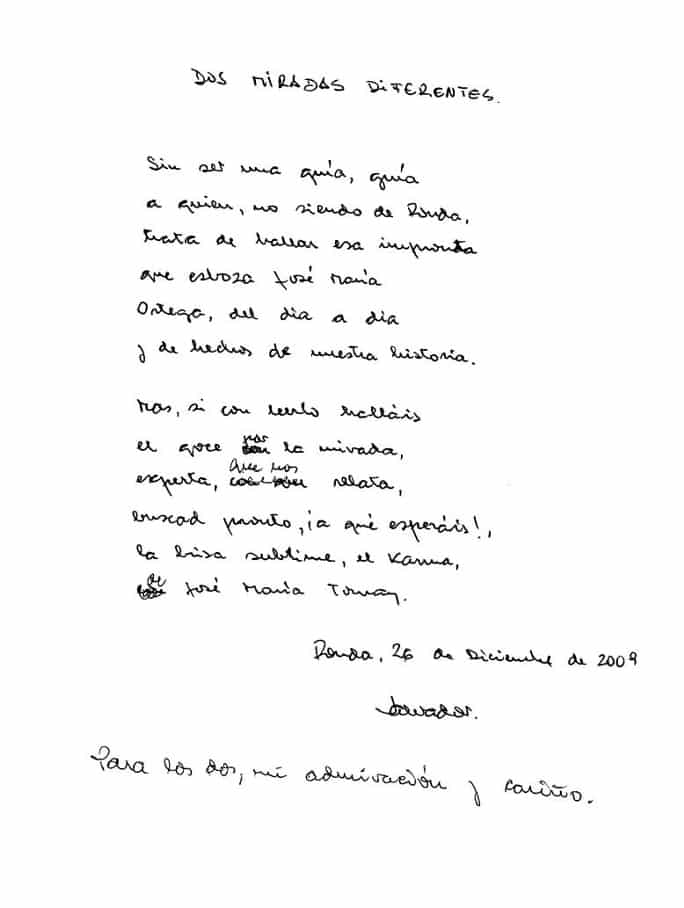 DOS MIRADAS DIFERENTES.
Sin ser una guía, guía
a quien, no siendo de Ronda,
trata de hallar esa impronta
que esboza José María
Ortega, del día a día
y de hechos de nuestra historia.
Mas, si con leerlo halláis
el goce por la mirada,
experta, que nos relata,
buscad pronto, ¡a qué esperáis!,
la brisa sublime, el Karma,
de José María Tornay.
Ronda, 26 de Diciembre de 2009
Salvador.
Para los dos, mi admiración y cariño.